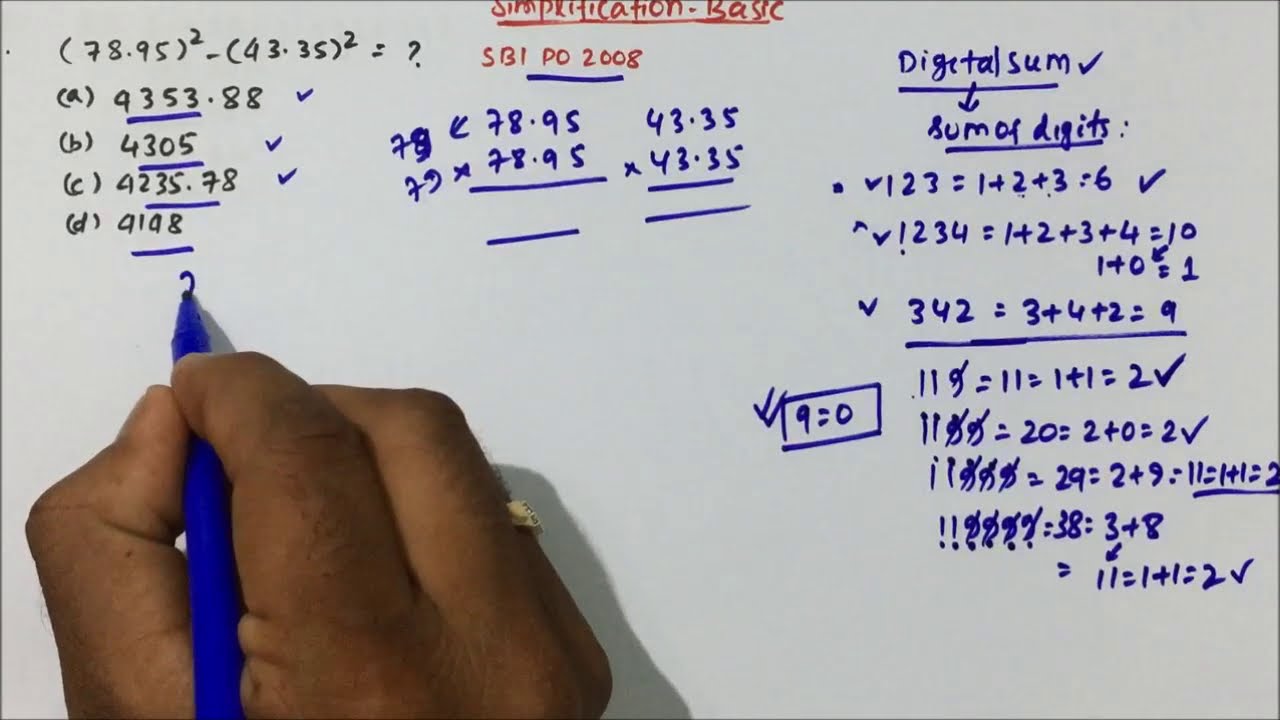 Simplification - Basic
(78.95)² - (43.35)² = ?
SBI PO 2008
(a) 4353.88 ✓
(b) 4305 ✓
(c) 4235.78 ✓
(d) 4148
79 < 78.95
79 × 78.95
43.35
× 43.35
Digital sum ✓
↓
sum of digits :
✓ 123 = 1+2+3 = 6 ✓
✓ 1234 = 1+2+3+4 = 10
1+0 = 1
✓ 342 = 3+4+2 = 9
119 = 11 = 1+1 = 2 ✓
✓ 9=0
1199 = 20 = 2+0 = 2 ✓
11999 = 29 = 2+9 = 11 = 1+1 = 2
119999 = 38 = 3+8
= 11 = 1+1 = 2 ✓